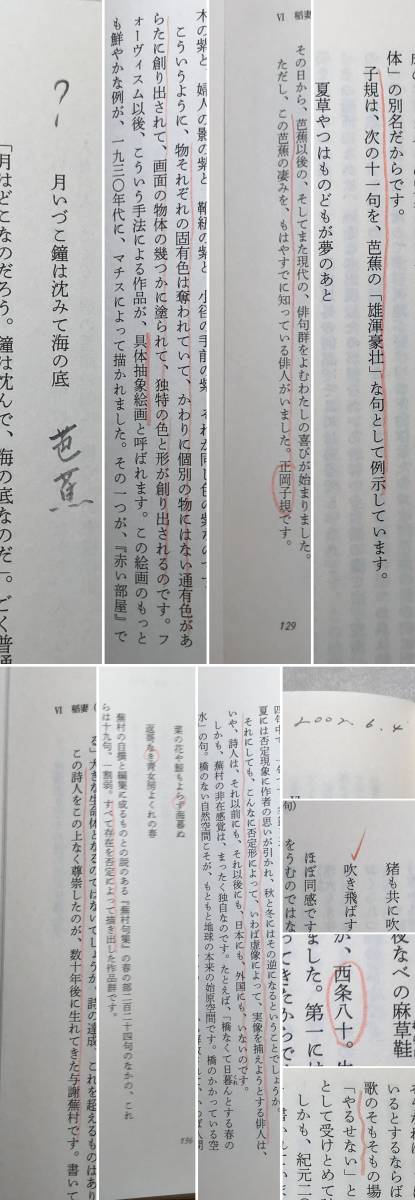 ?
月いづこ鐘は沈みて海の底
芭蕉
「月はどこなのだろう。鐘は沈んで、海の底なのだ」。ごく普通
こういうように、物それぞれの固有色は奪われていて、かわりに個別の物にはない通有色があ
らたに創り出されて、画面の物体の幾つかに塗られて、独特の色と形が創り出されるのです。フ
ォーヴィスム以後、こういう手法による作品が、具体抽象絵画と呼ばれます。この絵画のもっと
も鮮やかな例が、一九三〇年代に、マチスによって描かれました。その一つが、『赤い部屋』で
VI 稲妻
その日から、芭蕉以後の、そしてまた現代の、俳句群をよむわたしの喜びが始まりました。
ただし、この芭蕉の凄みを、もはやすでに知っている俳人がいました。正岡子規です。
129
体」の別名だからです。
子規は、次の十一句を、芭蕉の「雄渾豪壮」な句として例示しています。
夏草やつはものどもが夢のあと
VI 稲妻
る」大きな生命体となるのではないでしょうか。詩の達成、これを超えるものはあり
この詩人をこの上なく尊崇したのが、数十年後に生れてきた与謝蕪村です。書いて
菜の花や鯨もよらず海暮ぬ
返哥なき青女房よくれの春
蕪村の自撰と編集に成るものとの説のある『蕪村句集』の春の部二百二十四句のなかの、これ
らは十九句、一割弱。すべて存在を否定によって描き出した作品群です。
136
夏には否定現象に作者の思いが引かれ、秋と冬にはその逆になるということでしょうか。
それにしても、こんなに否定形によって、いわば虚像によって、実像を捕えようとする俳人は、
いや、詩人は、それ以前にも、それ以後にも、日本にも、外国にも、いないのです。
しかも、蕪村の非在感覚は、まったく独自なのです。たとえば、「橋なくて日暮んとする春の
水」の句。橋のない自然空間こそが、もともと地球の本来の始原空間です。橋のかかっている空
2002.6.4
猪も共に吹
吹き飛ばす
ほぼ同感です
をうむのではな
夜なべの麻草鞋
が、西条八十。
ました。第一に
いるとするならば
歌のそもそもの場
「やるせない」と
として受けとめて
しかも、紀元二